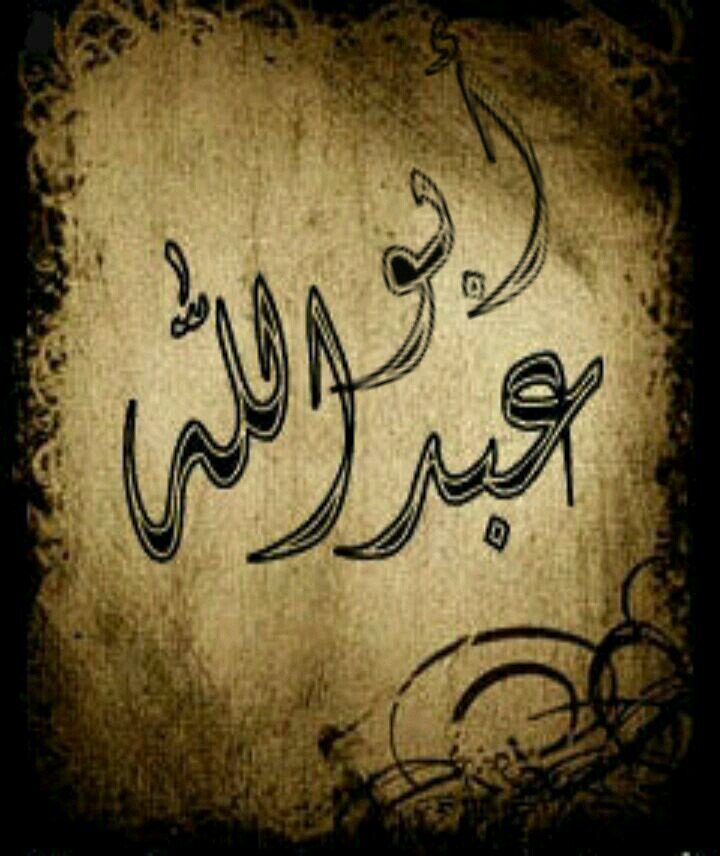 أبو
عبد الله